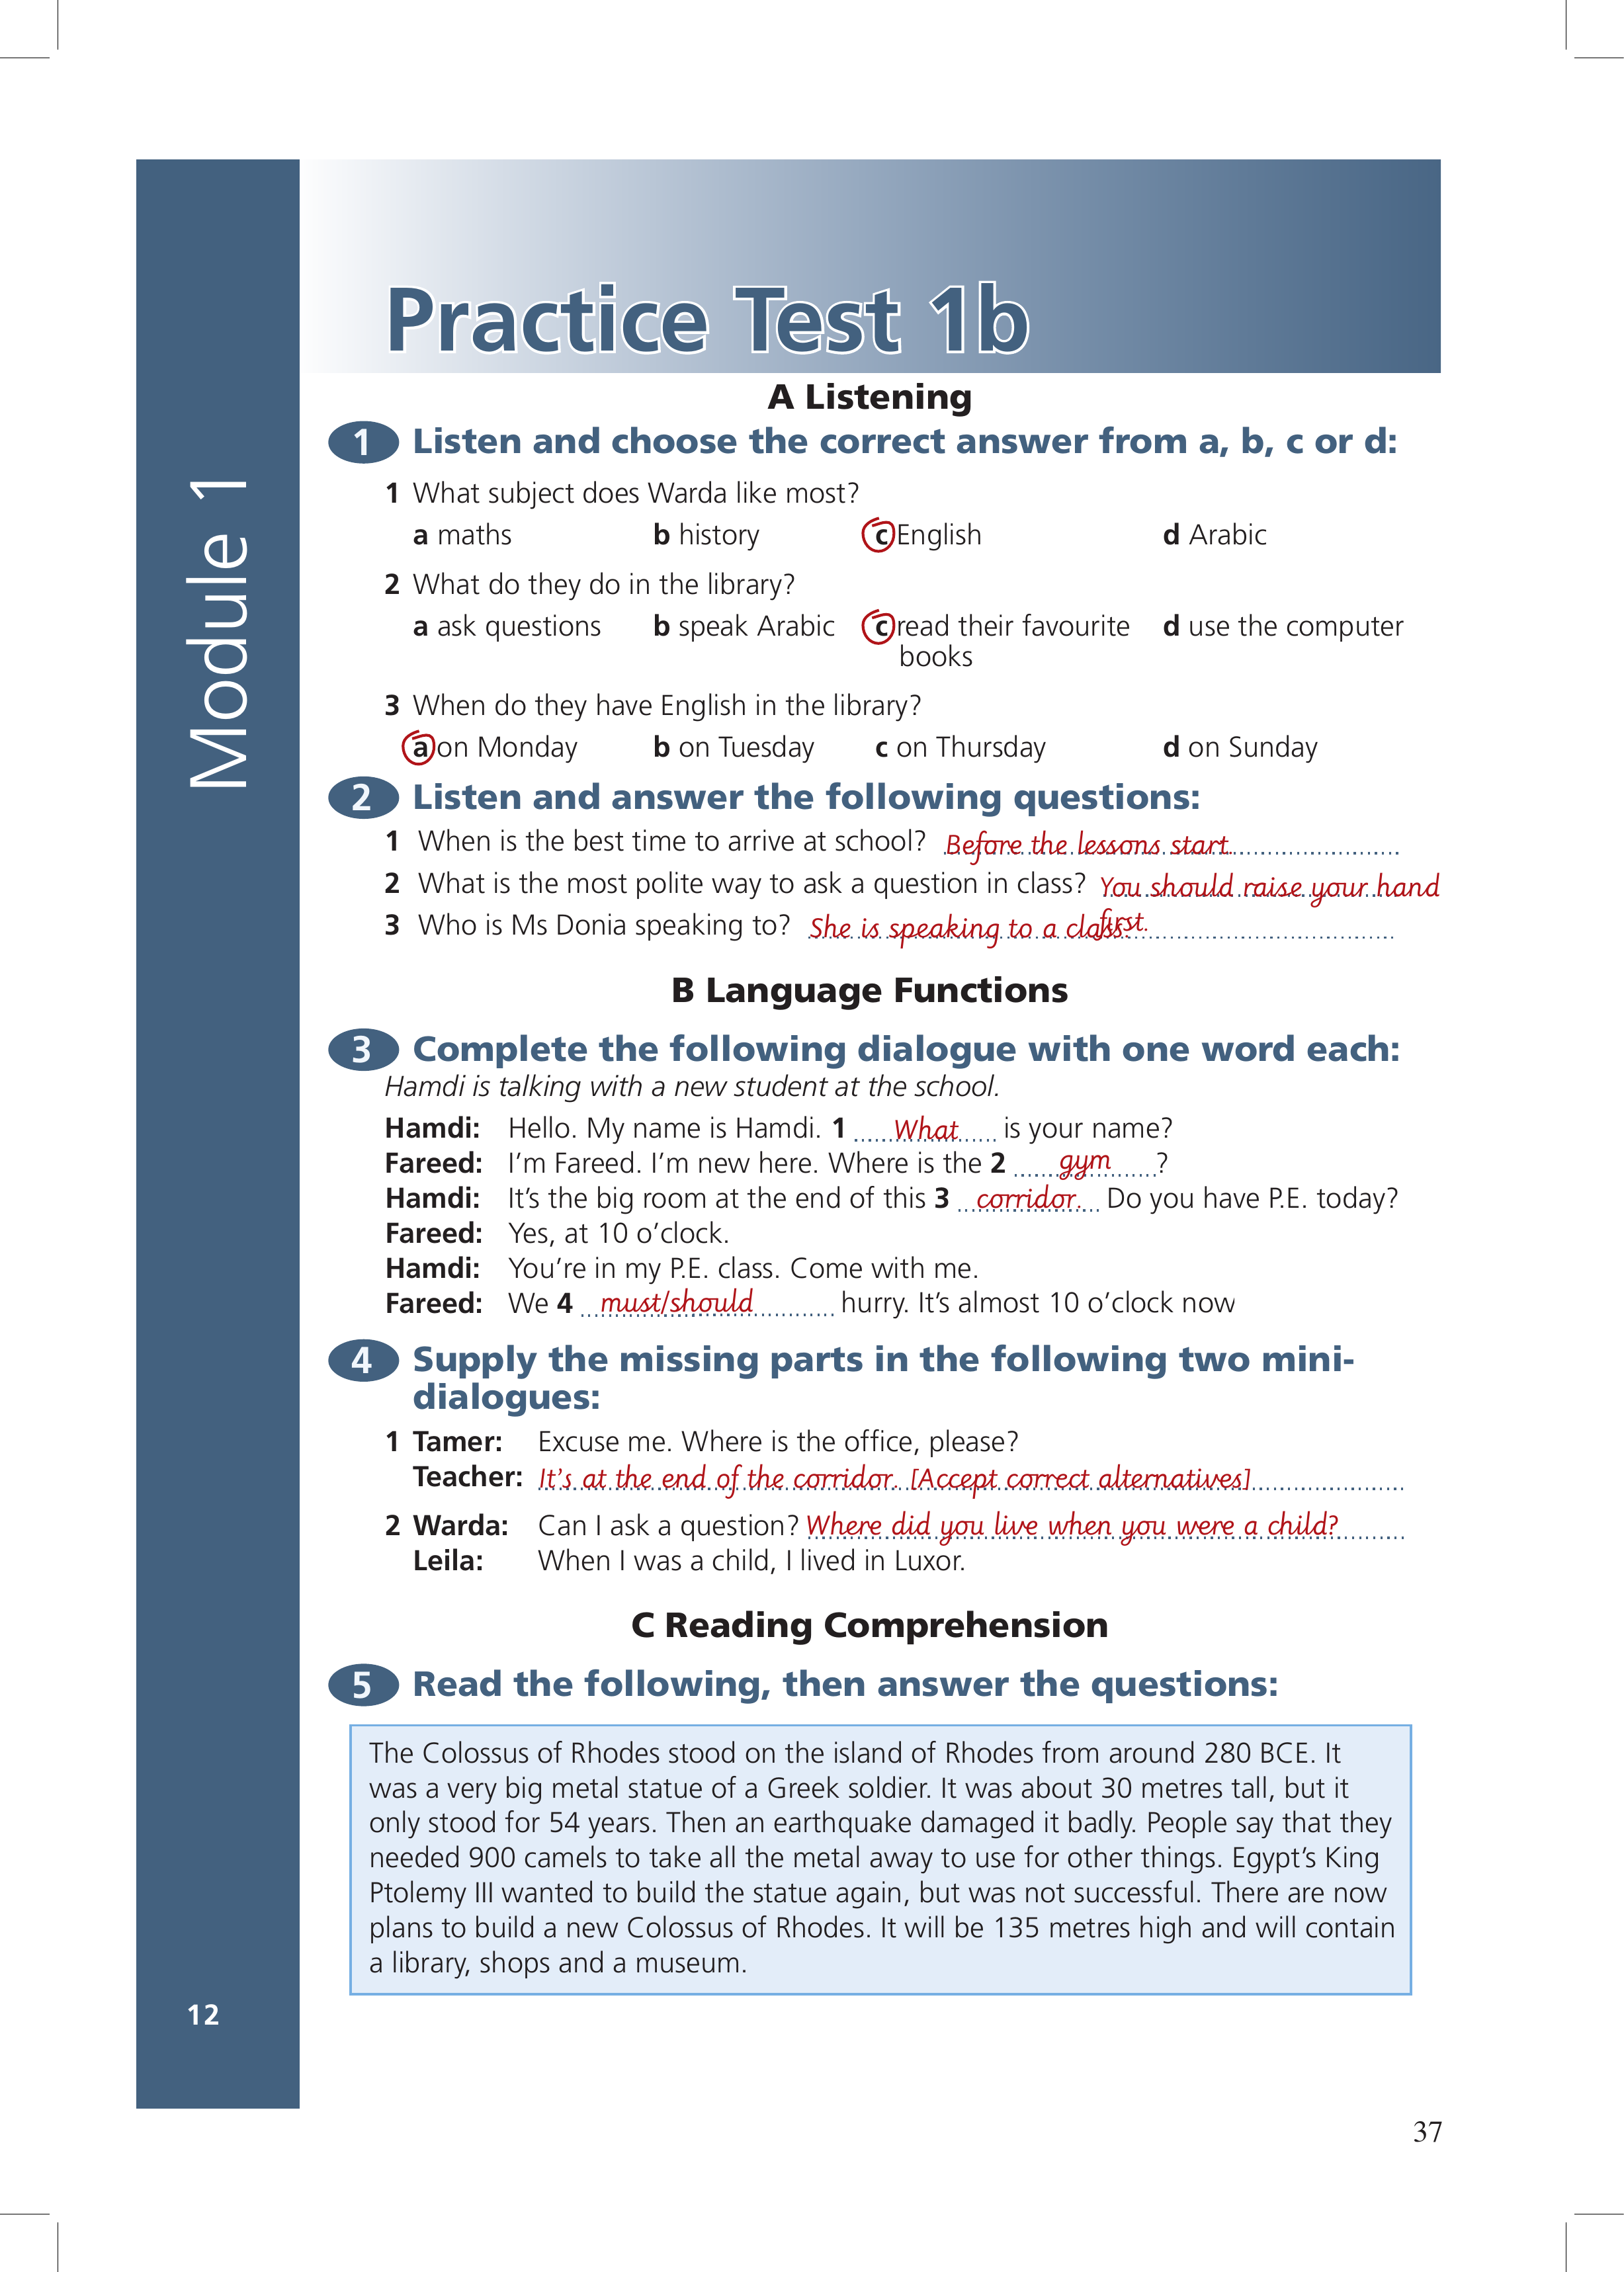 Module 1
Practice Test 1b
A Listening
1 Listen and choose the correct answer from a, b, c or d:
1 What subject does Warda like most?
a maths b history c English d Arabic
2 What do they do in the library?
a ask questions b speak Arabic c read their favourite d use the computer
books
3 When do they have English in the library?
a on Monday b on Tuesday c on Thursday d on Sunday
2 Listen and answer the following questions:
1 When is the best time to arrive at school? Before the lessons start.
2 What is the most polite way to ask a question in class? You should raise your hand
first.
3 Who is Ms Donia speaking to? She is speaking to a class.
B Language Functions
3 Complete the following dialogue with one word each:
Hamdi is talking with a new student at the school.
Hamdi: Hello. My name is Hamdi. 1 What is your name?
Fareed: I'm Fareed. I'm new here. Where is the 2 gym ?
Hamdi: It's the big room at the end of this 3 corridor. Do you have P.E. today?
Fareed: Yes, at 10 o'clock.
Hamdi: You're in my P.E. class. Come with me.
Fareed: We 4 must/should hurry. It's almost 10 o'clock now
4 Supply the missing parts in the following two mini-
dialogues:
1 Tamer: Excuse me. Where is the office, please?
Teacher: It's at the end of the corridor. [Accept correct alternatives]
2 Warda: Can I ask a question? Where did you live when you were a child?
Leila: When I was a child, I lived in Luxor.
C Reading Comprehension
5 Read the following, then answer the questions:
The Colossus of Rhodes stood on the island of Rhodes from around 280 BCE. It
was a very big metal statue of a Greek soldier. It was about 30 metres tall, but it
only stood for 54 years. Then an earthquake damaged it badly. People say that they
needed 900 camels to take all the metal away to use for other things. Egypt's King
Ptolemy III wanted to build the statue again, but was not successful. There are now
plans to build a new Colossus of Rhodes. It will be 135 metres high and will contain
a library, shops and a museum.
12
37